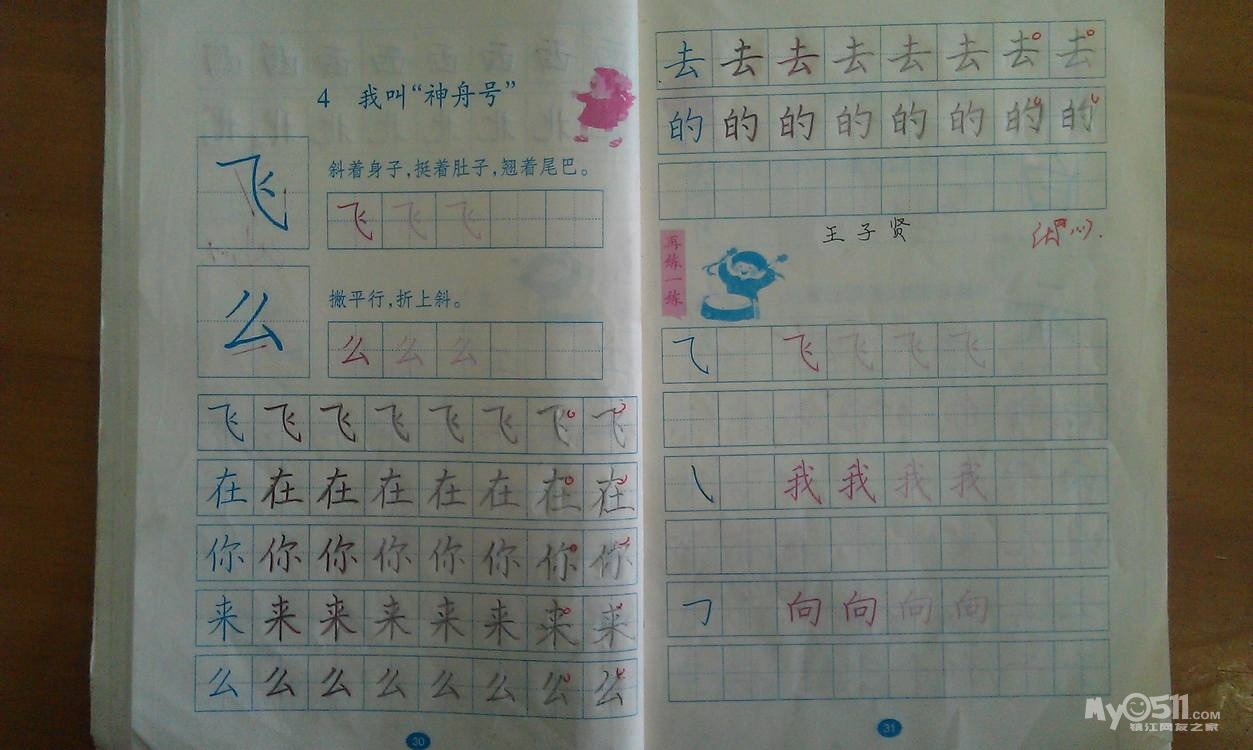 4 我叫“神舟号”
飞
斜着身子,挺着肚子,翘着尾巴。
飞 飞 飞
么
撇平行,折上斜。
么 么 么
飞 飞 飞 飞 飞 飞 飞 飞
在 在 在 在 在 在 在 在
你 你 你 你 你 你 你 你
来 来 来 来 来 来 来 来
么 么 么 么 么 么 么 么
30
去 去 去 去 去 去 去 去
的 的 的 的 的 的 的 的
王子贤
再练一练
⺄ 飞 飞 飞 飞
㇏ 我 我 我 我
𠃌 向 向 向 向
31
My0511.COM
镇江网友之家